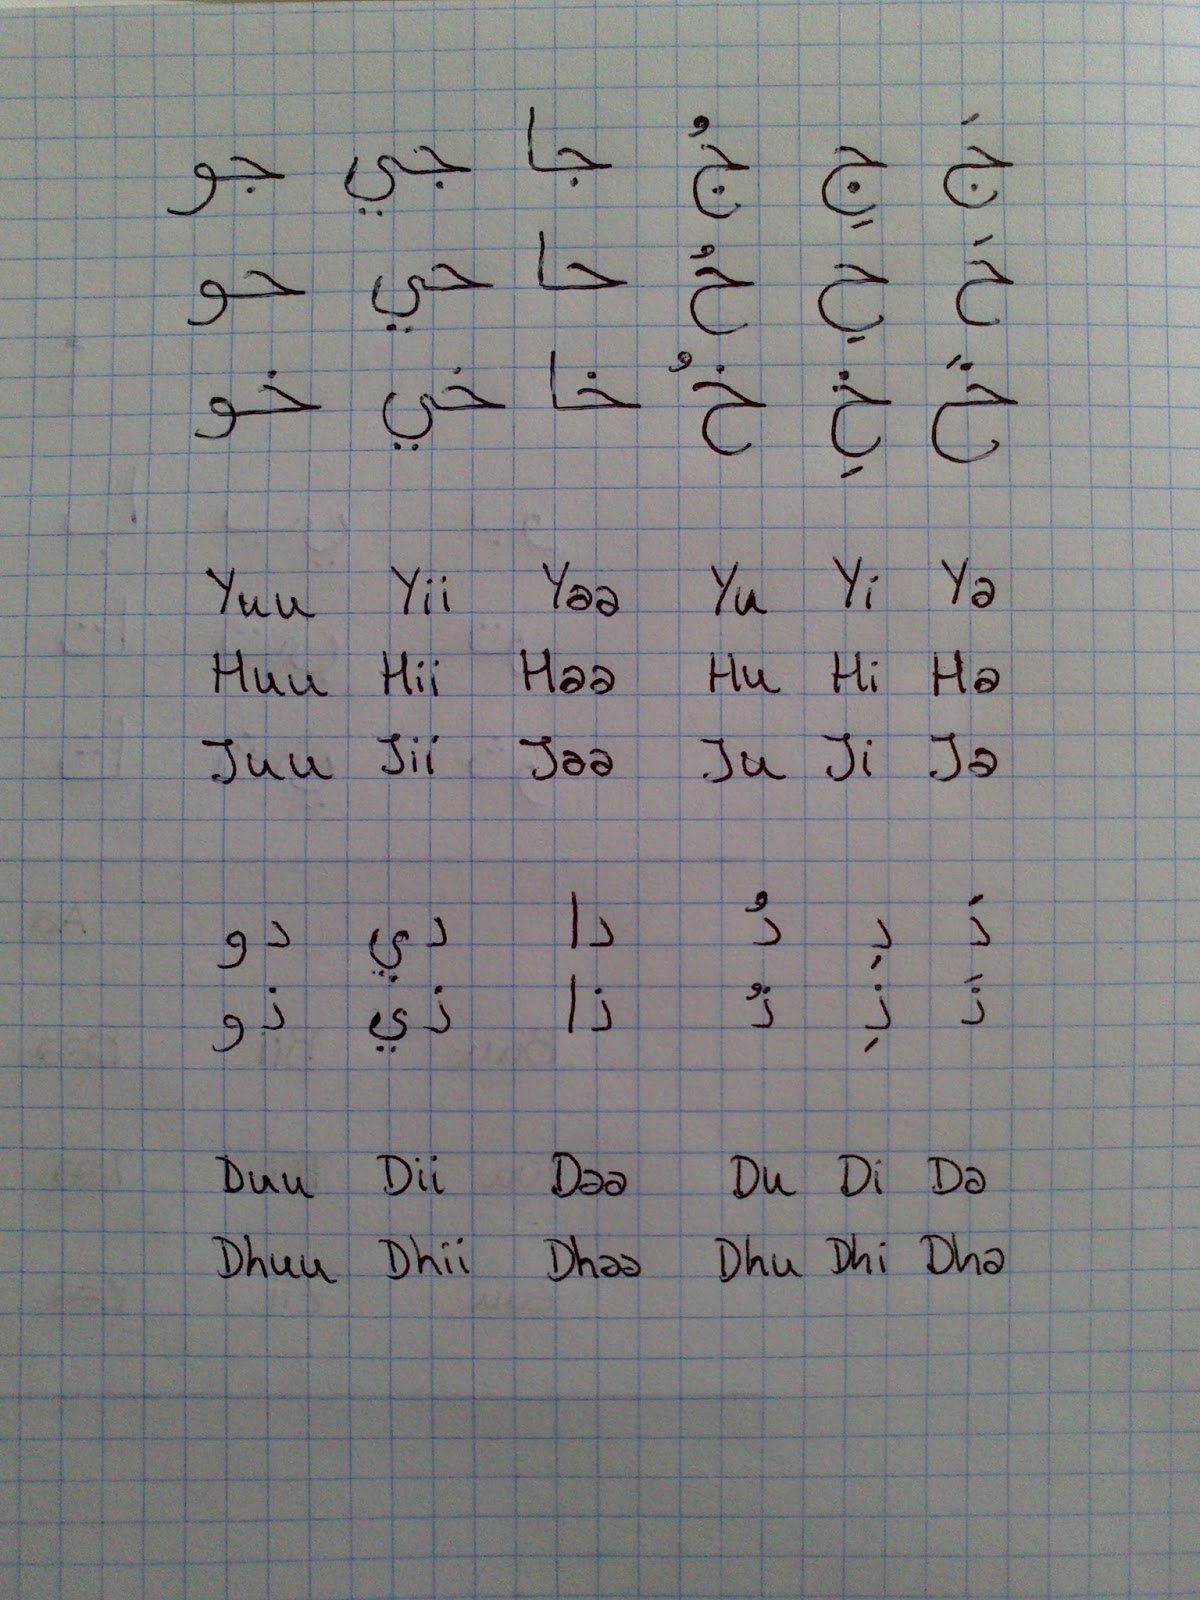 جَ جِ جُ جا جي جو
حَ حِ حُ حا حي حو
خَ خِ خُ خا خي خو
Yuu Yii Yaa Yu Yi Ya
Huu Hii Haa Hu Hi Ha
Juu Jii Jaa Ju Ji Ja
دَ دِ دُ دا دي دو
ذَ ذِ ذُ ذا ذي ذو
Duu Dii Daa Du Di Da
Dhuu Dhii Dhaa Dhu Dhi Dha